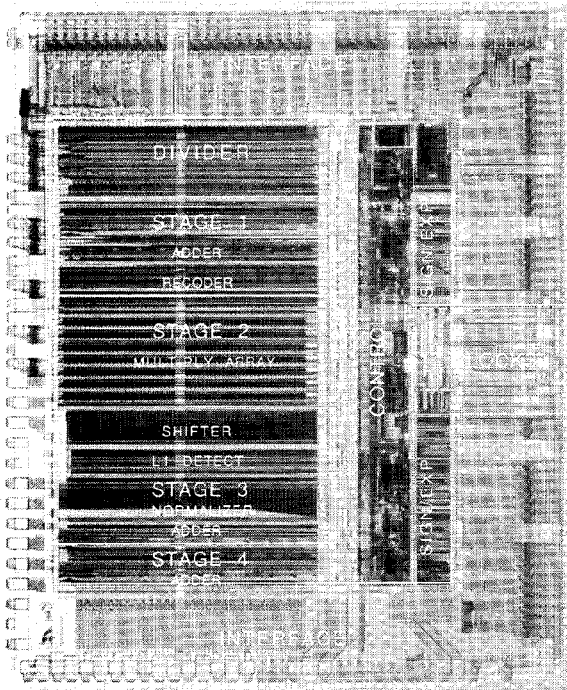 INTERFACE
DIVIDER
STAGE 1
ADDER
RECODER
STAGE 2
MULTIPLY ARRAY
SHIFTER
L1 DETECT
STAGE 3
NORMALIZER
ADDER
STAGE 4
ADDER
INTERFACE
CONTROL
SIGN/EXP
SIGN/EXP